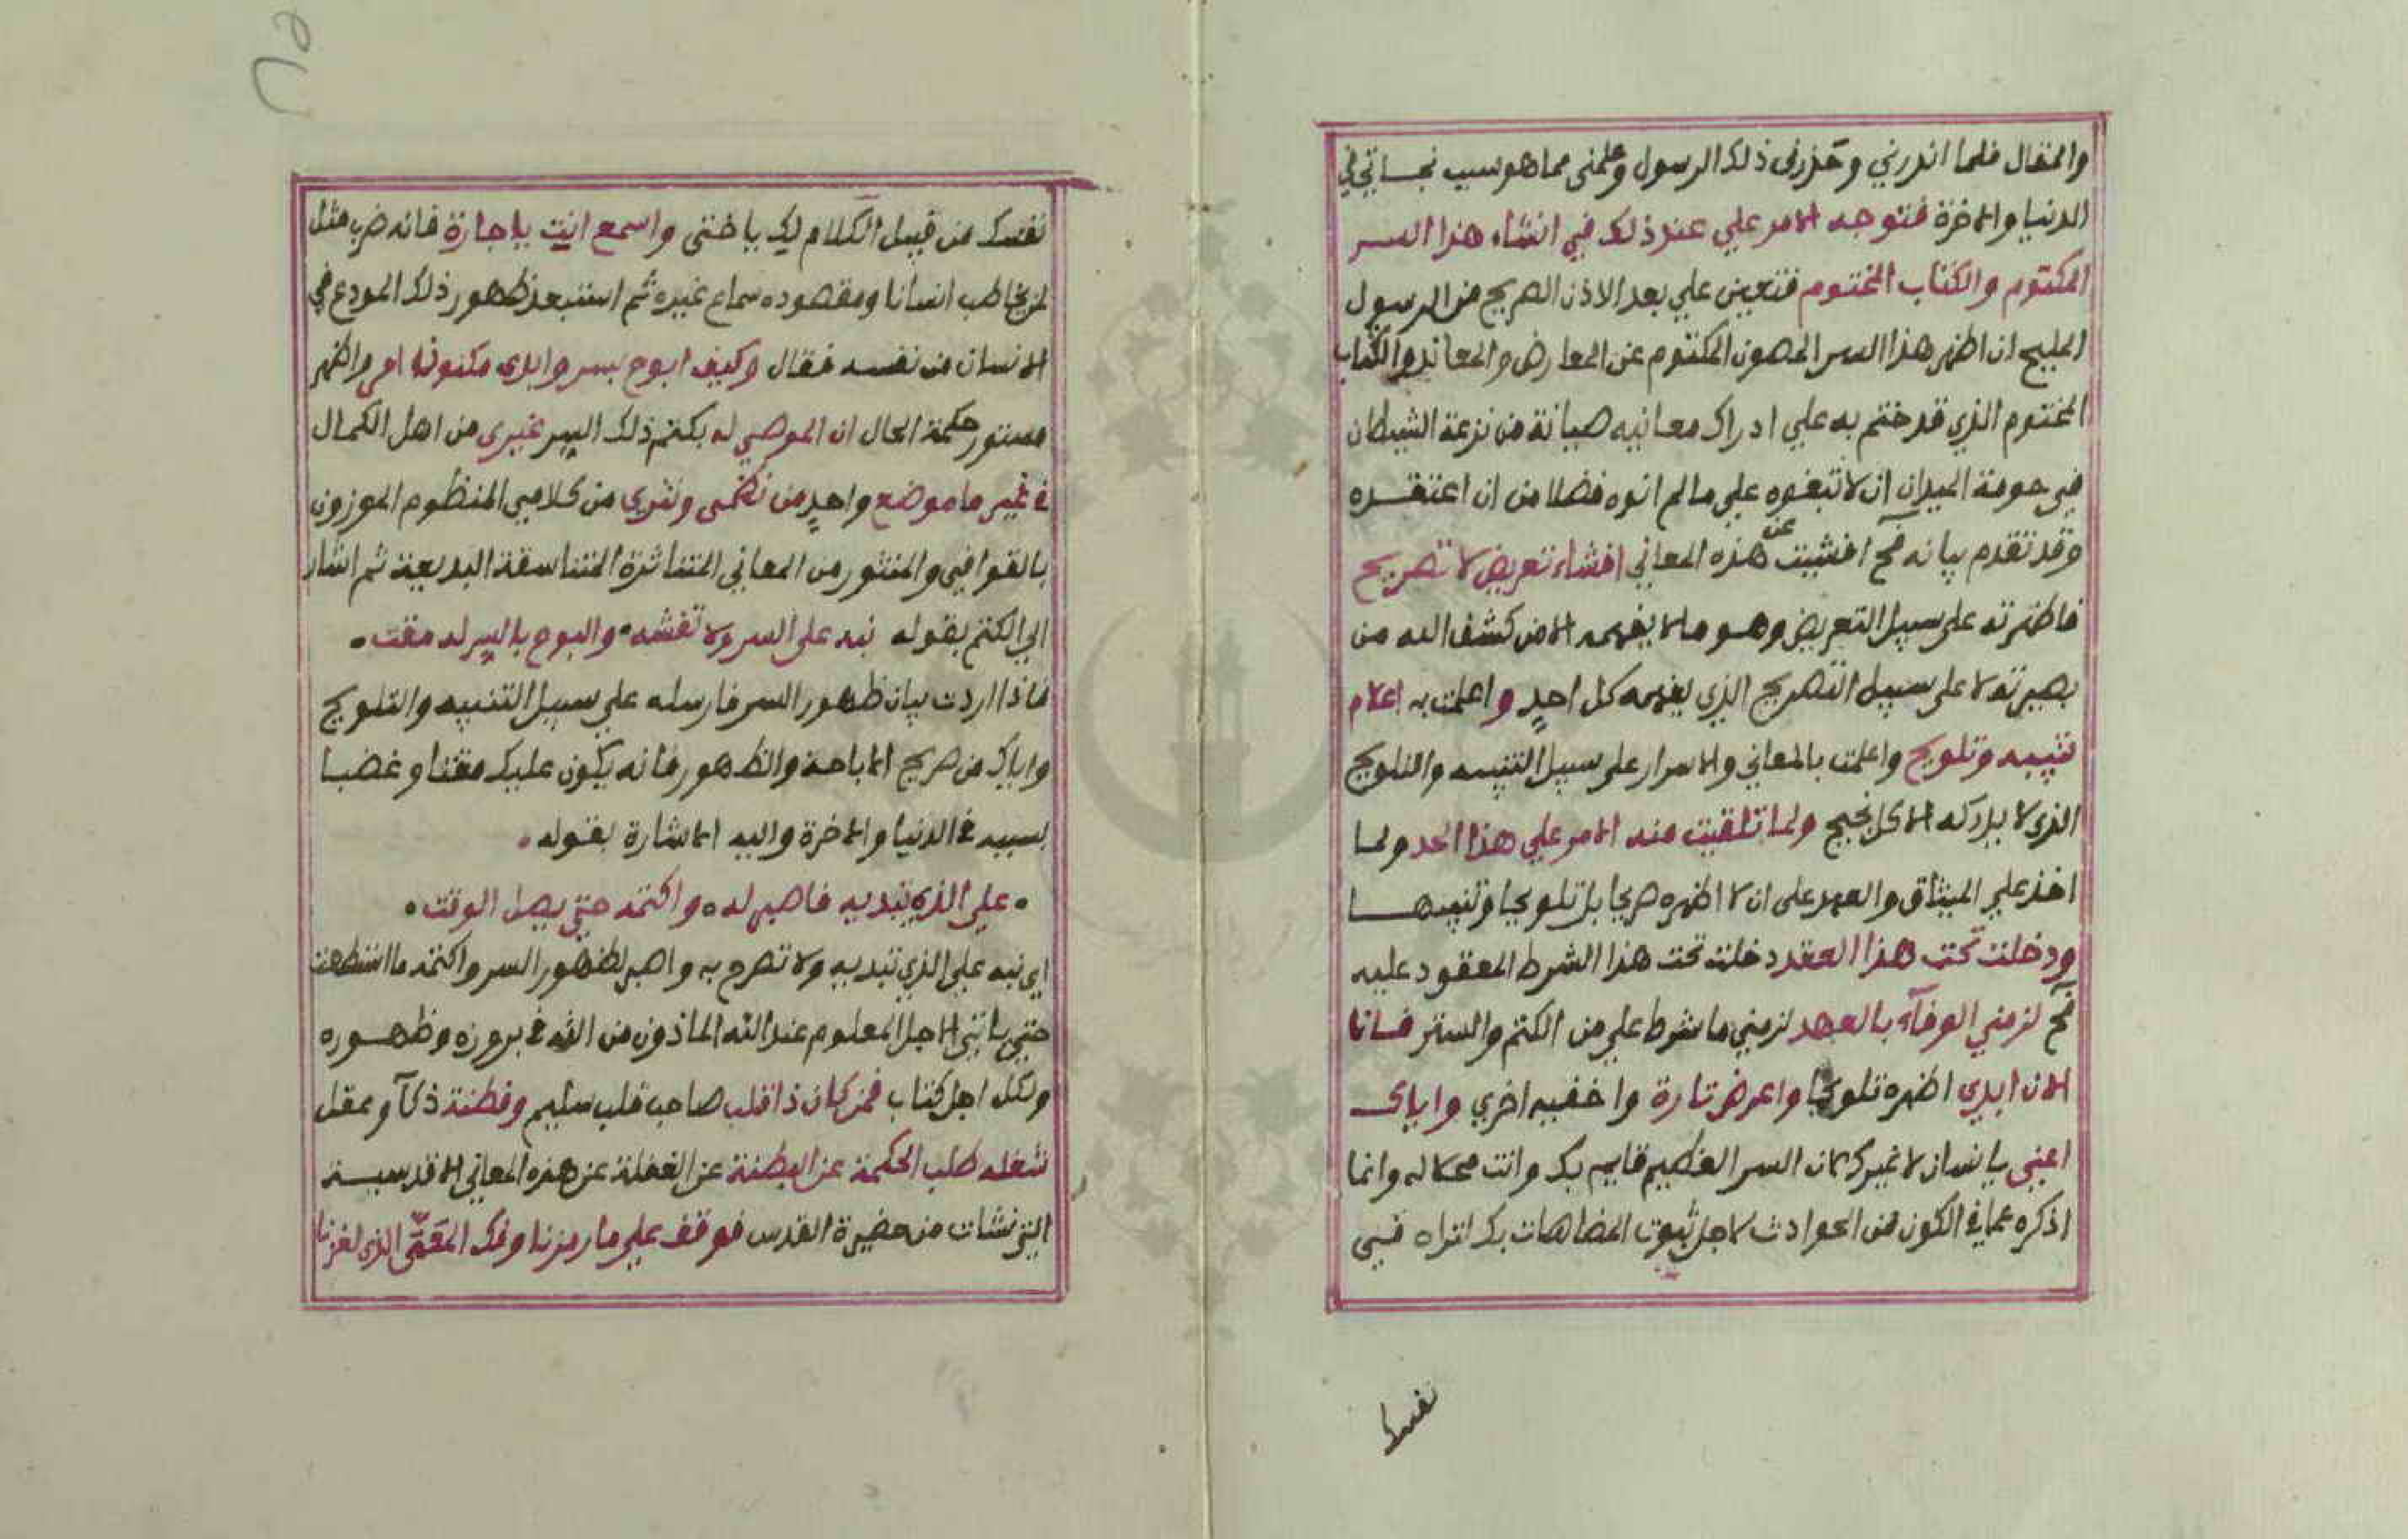 والمنقال فلما انذرني وحذرني ذلك الرسول وعلمني مما هو سبب نجاتي في
الدنيا والاخرة فتوجه الامر علي عند ذلك في انشاء هذا السر
المكتوم والكتاب المختوم فتعين علي بعد الاذن الصريح من الرسول
المليح ان اظهر هذا السر المصون المكتوم عن المعارض والمعاند والكتاب
المختوم الذي قد ختم به علي ادراك معانيه صيانة من نزعة الشيطان
في حومة الميدان ان لا تبغوه علي ما لم انوه فضلا من ان اعتقده
وقد تقدم بيانه فح افشيت عن هذه المعاني افشاء تعريض لا تصريح
فاظهرته على سبيل التعريض وهو ما لا يفهمه الا من كشف الله من
بصيرته لا على سبيل التصريح الذي يفهمه كل احدٍ واعلمت به اعلام
تنبيه وتلويح واعلمت بالمعاني والاسرار على سبيل التنبيه والتلويح
الذي لا يدركه الا كل نجيح ولما تلقيت منه الامر علي هذا الحد ولما
اخذ علي الميثاق والعهد على ان لا اظهره صريحا بل تلويحا وتنبيها
ودخلت تحت هذا العقد دخلت تحت هذا الشرط المعقود عليه
فح لزمني الوفآء بالعهد لزمني ما شرط علي من الكتم والستر فانا
الان ابدي اظهره تلويحا واعرض تارة واخفيه اخري واياك
اعني يا انسان لا غيرك لان السر العظيم قايم بك وانت محلا له وانما
اذكره عما في الكون من الحوادث لاجل ثبوت المضاهات بك اتراه في
نفسك
٢٥
نفسك من قبيل الكلام ليك يا ختنى واسمع انت يا جارة فانه ضرب مثل
لمن يخاطب انسانا ومقصوده سماع غيره ثم استبعد ظهور ذلك المودع في
الانسان من نفسه فقال وكيف ابوح بسر وابدى مكنونه اى واظهر
مستور حكمة الحال ان الموصي له بكتم ذلك السر غيرى من اهل الكمال
في غير ما موضع واحدٍ من نظمى ونثرى من كلامي المنظوم الموزون
بالقوافي والمنثور من المعاني المتناثرة المتناسقة البديعة ثم اشار
الي الكتم بقوله نبه على السر ولا تفشه • والبوح بالسر له مقت •
فاذا اردت بيان ظهور السر فارسله علي سبيل التنبيه والتلويح
واياك من صريح الاباحة والظهور فانه يكون عليك مقتا وغضبا
بسببه في الدنيا والاخرة واليه الاشارة بقوله •
• علي الذي تبديه فاصبر له • واكتمه حتي يصل الوقت •
اي نبه علي الذي تبديه ولا تصرح به واصبر لظهور السر واكتمه ما استطعت
حتي ياتي الاجل المعلوم عند الله الماذون من الله في بروزه وظهوره
ولكل اجل كتاب فمن كان ذا قلب صاحب قلب سليم وفطنة ذكآ وعقل
شغله طلب الحكمة عن البطنة عن الغفلة عن هذه المعاني الاقدسية
التي نشات من حضيرة القدس فوقف علي ما رمزنا وفك المعمّى الذى لغزنا